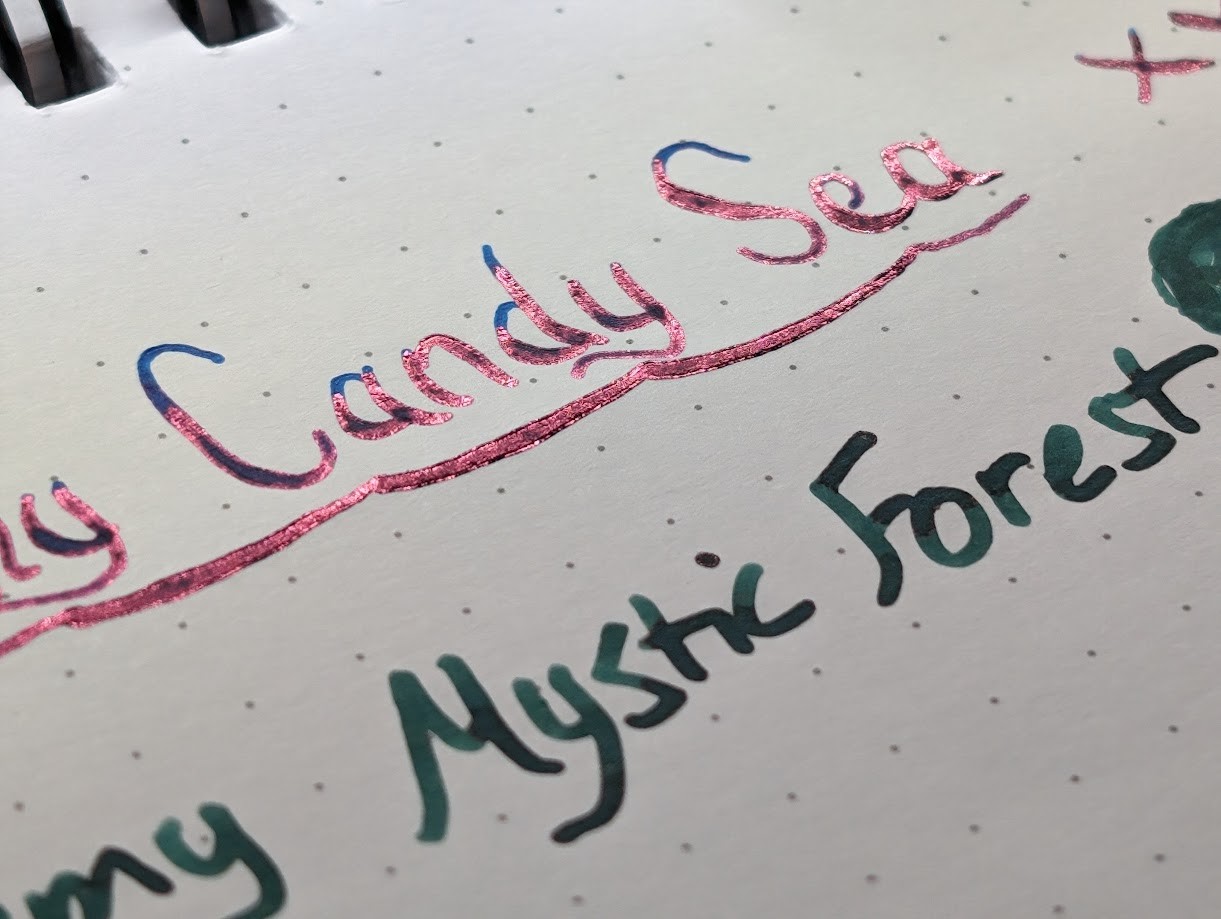 Candy Sea
Mystic Forest